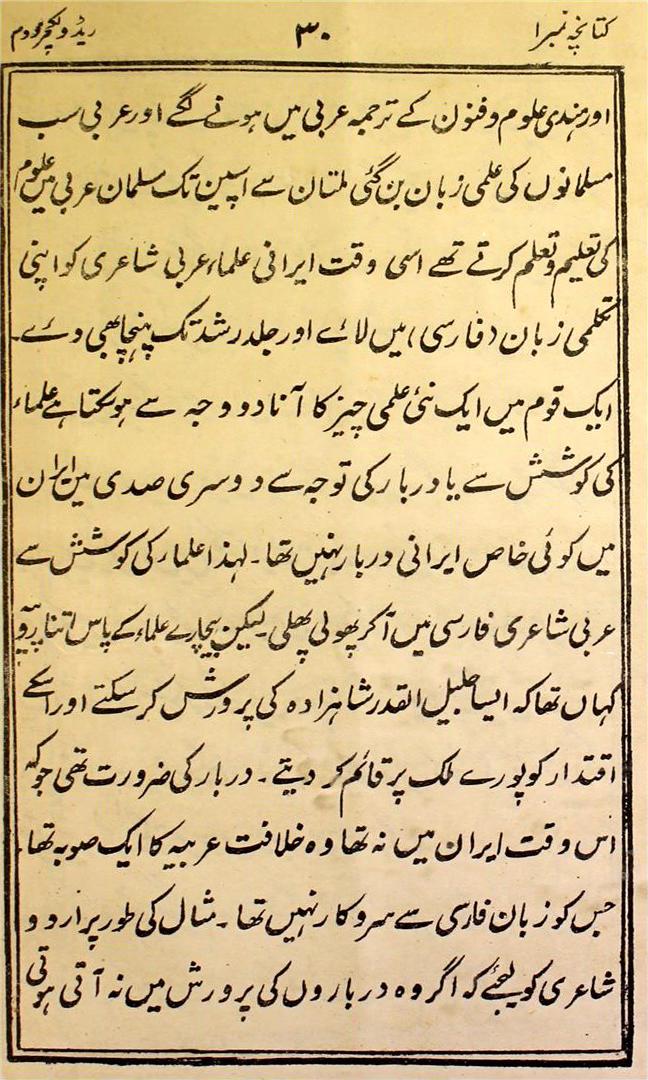 کتابچہ نمبر ۱ ۳۰ ریڈ و لکچر دوم
اور ہندی علوم و فنون کے ترجمہ عربی میں ہونے لگے اور عربی سب
مسلمانوں کی علمی زبان بن گئی ملتان سے اسپین تک مسلمان عربی میں علوم
کی تعلیم و تعلم کرتے تھے اسی وقت ایرانی علماء عربی شاعری کو اپنی
تکلمی زبان (فارسی) میں لائے اور جلد رشد تک پہنچا بھی دئے۔
ایک قوم میں ایک نئی علمی چیز کا آنا دو وجہ سے ہو سکتا ہے علماء
کی کوشش سے یا دربار کی توجہ سے دوسری صدی میں ایران
میں کوئی خاص ایرانی دربار نہیں تھا۔ لہذا علماء کی کوشش سے
عربی شاعری فارسی میں آکر پھولی پھلی۔ لیکن بیچارے علماء کے پاس اتنا روپیہ
کہاں تھا کہ ایسا جلیل القدر شاہزادہ کی پرورش کر سکتے اور اسکے
اقتدار کو پورے ملک پر قائم کر دیتے۔ دربار کی ضرورت تھی جو کہ
اس وقت ایران میں نہ تھا وہ خلافت عربیہ کا ایک صوبہ تھا۔
جس کو زبان فارسی سے سروکار نہیں تھا۔ مثال کی طور پر اردو
شاعری کو لیجئے کہ اگر وہ درباروں کی پرورش میں نہ آتی ہوتی